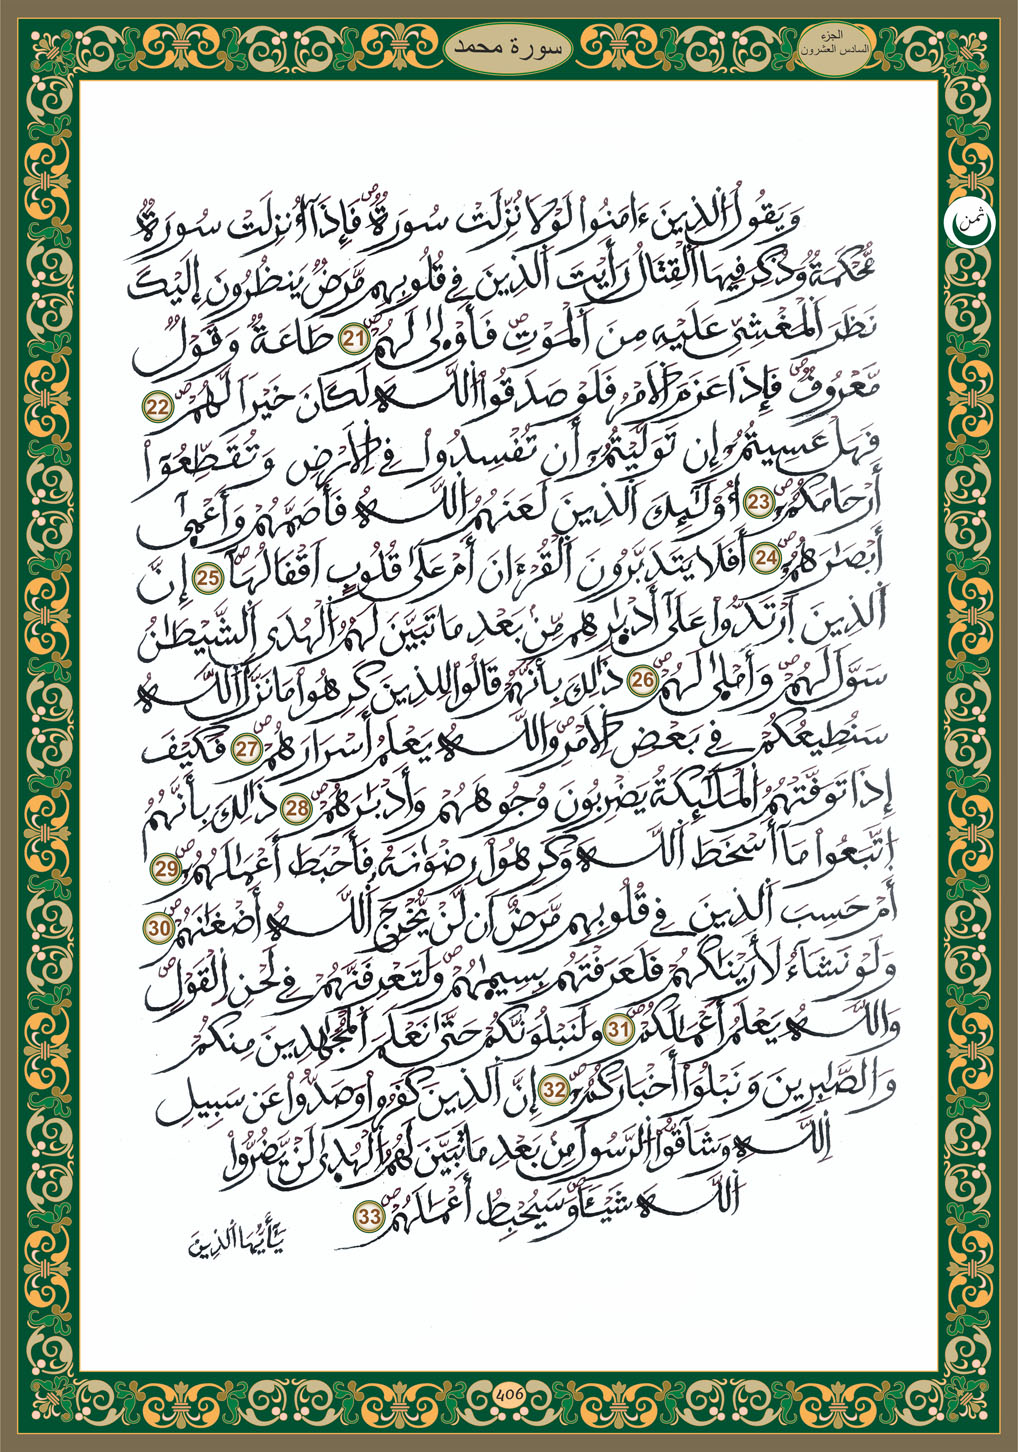 سورة محمد
الجزء
السادس العشرون
ثمن
وَيَقُولُ الَذِينَ ءَامَنُواْ لَوْلَا نُزِّلَتْ سُورَةٌ فَإِذَآ أُنزِلَتْ سُورَةٌ
مُّحْكَمَةٌ وَذُكِرَ فِيهَا الْقِتَالُ رَأَيْتَ الَذِينَ فِي قُلُوبِهِم مَّرَضٌ يَنظُرُونَ إِلَيْكَ
نَظَرَ الْمَغْشِيِّ عَلَيْهِ مِنَ الْمَوْتِ فَأَوْلىٰ لَهُمْ 21 طَاعَةٌ وَقَوْلٌ
مَّعْرُوفٌ فَإِذَا عَزَمَ الَامْرُ فَلَوْ صَدَقُواْ اللَّهَ لَكَانَ خَيْراً لَّهُمْ 22
فَهَلْ عَسِيتُمُ إِن تَوَلَّيْتُمُ أَن تُفْسِدُواْ فِي الَارْضِ وَتُقَطِّعُوٓاْ
أَرْحَامَكُمُ 23 أُوْلَٰٓئِكَ الَذِينَ لَعَنَهُمُ اللَّهُ فَأَصَمَّهُمْ وَأَعْمىٰٓ
أَبْصَٰرَهُمُ 24 أَفَلَا يَتَدَبَّرُونَ الْقُرْءَانَ أَمْ عَلَىٰ قُلُوبٍ اَقْفَالُهَآ 25 إِنَّ
الَذِينَ اَرْتَدُّواْ عَلَىٰٓ أَدْبٰرِهِم مِّنۢ بَعْدِ مَا تَبَيَّنَ لَهُمُ الْهُدَى الشَّيْطَٰنُ
سَوَّلَ لَهُمْ وَأَمْلىٰ لَهُمْ 26 ذَٰلِكَ بِأَنَّهُمْ قَالُواْ لِلذِينَ كَرِهُواْ مَا نَزَّلَ اللَّهُ
سَنُطِيعُكُمْ فِي بَعْضِ الَامْرِ وَاللَّهُ يَعْلَمُ أَسْرَارَهُمْ 27 فَكَيْفَ
إِذَا تَوَفَّتْهُمُ الْمَلَٰٓئِكَةُ يَضْرِبُونَ وُجُوهَهُمْ وَأَدْبَٰرَهُمْ 28 ذَٰلِكَ بِأَنَّهُمُ
اتَّبَعُواْ مَآ أَسْخَطَ اللَّهَ وَكَرِهُواْ رِضْوَٰنَهُ فَأَحْبَطَ أَعْمَٰلَهُمُ 29
أَمْ حَسِبَ الَذِينَ فِي قُلُوبِهِم مَّرَضٌ اَن لَّنْ يُّخْرِجَ اللَّهُ أَضْغَٰنَهُمْ 30
وَلَوْ نَشَآءُ لَأَرَيْنَٰكَهُمْ فَلَعَرَفْتَهُم بِسِيمٰهُمْ وَلَتَعْرِفَنَّهُمْ فِي لَحْنِ الْقَوْلِ
وَاللَّهُ يَعْلَمُ أَعْمَٰلَكُمْ 31 وَلَنَبْلُوَنَّكُمْ حَتَّىٰ نَعْلَمَ الْمُجَٰهِدِينَ مِنكُمْ
وَالصَّٰبِرِينَ وَنَبْلُوَاْ أَخْبَارَكُمُ 32 إِنَّ الَذِينَ كَفَرُواْ وَصَدُّواْ عَن سَبِيلِ
اللَّهِ وَشَآقُّواْ الرَّسُولَ مِنۢ بَعْدِ مَا تَبَيَّنَ لَهُمُ الْهُدىٰ لَنْ يَّضُرُّواْ
اللَّهَ شَيْئاً وَسَيُحْبِطُ أَعْمَٰلَهُمْ 33
يَٰٓأَيُّهَا الَذِينَ
406